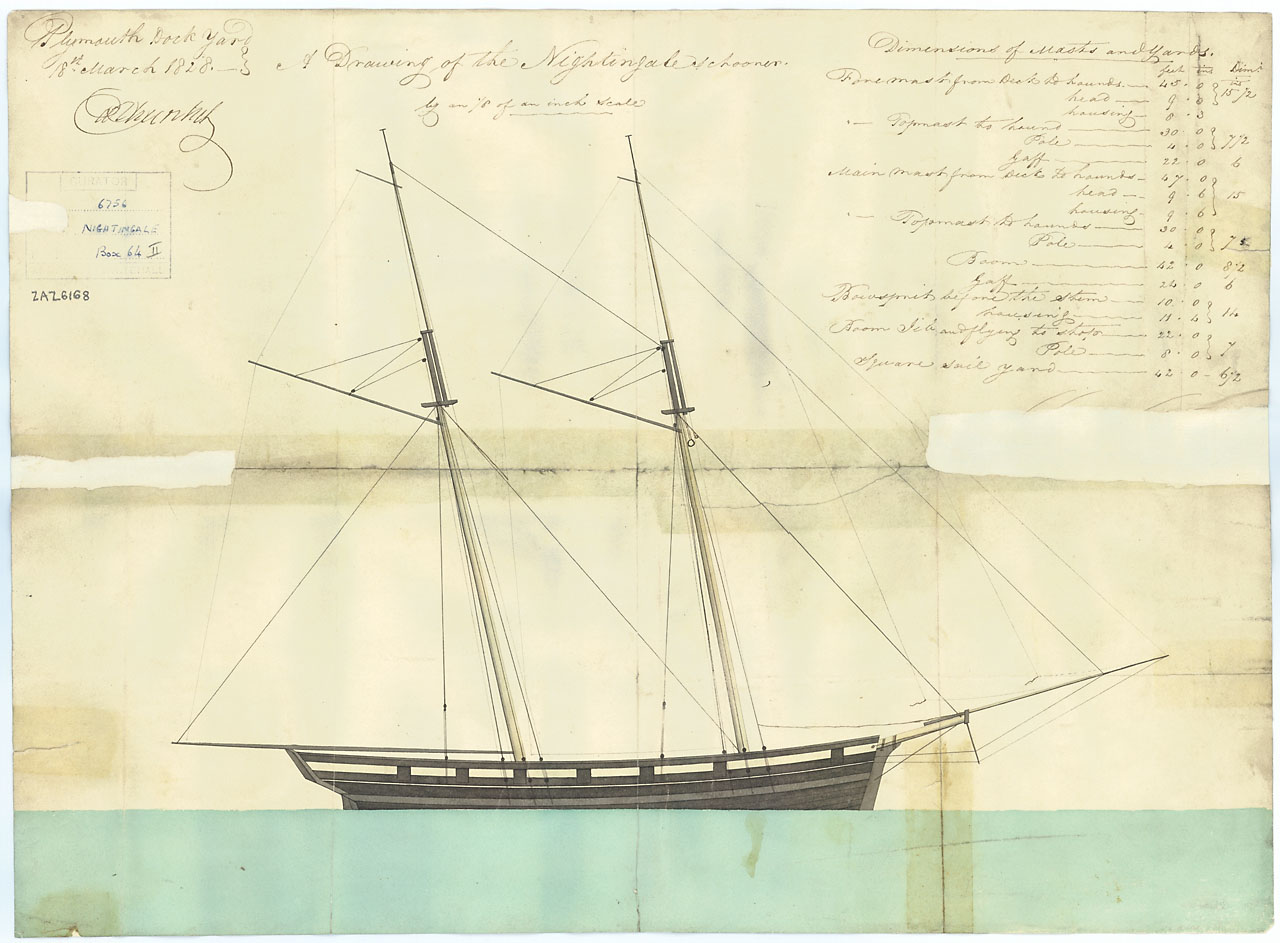 Plymouth Dock Yard
18th March 1828.
A Drawing of the Nightingale Schooner.
by an 1/8 of an inch scale
CURATOR
6756
NIGHTINGALE
Box 64 II
ZAZ6168
Dimensions of Masts and Yards.
feet ins Diamr
Fore mast from Deck to hounds 45 · 0
head 9 · 3 15 1/2
housing 8 · 3
Topmast to hound 30 · 0
Pole 4 · 0 7 1/2
Gaff 22 · 0 6
Main Mast from Deck to hounds 47 · 0
head 9 · 6 15
housing 9 · 6
Topmast to hounds 30 · 0
Pole 4 · 0 7
Boom 42 · 0 8 1/2
Gaff 24 · 0 6
Bowsprit before the Stem 10 · 0
housing 11 · 4 14
Boom Jib and flying to stop 22 · 0
Pole 8 · 0 7
Square sail yard 42 · 0 6 1/2